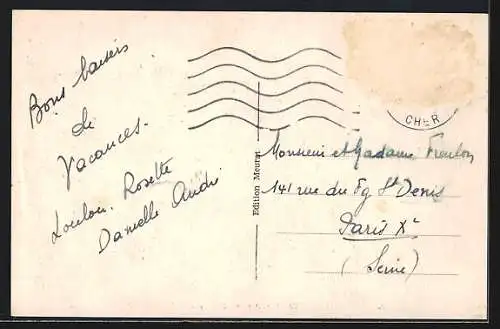 Bons baisers
de
Vacances.
Loulou. Rosette
Danielle André
Edition Meunet
CHER
Monsieur et Madame
141 rue du Fg St Denis
Paris Xe
(Seine)